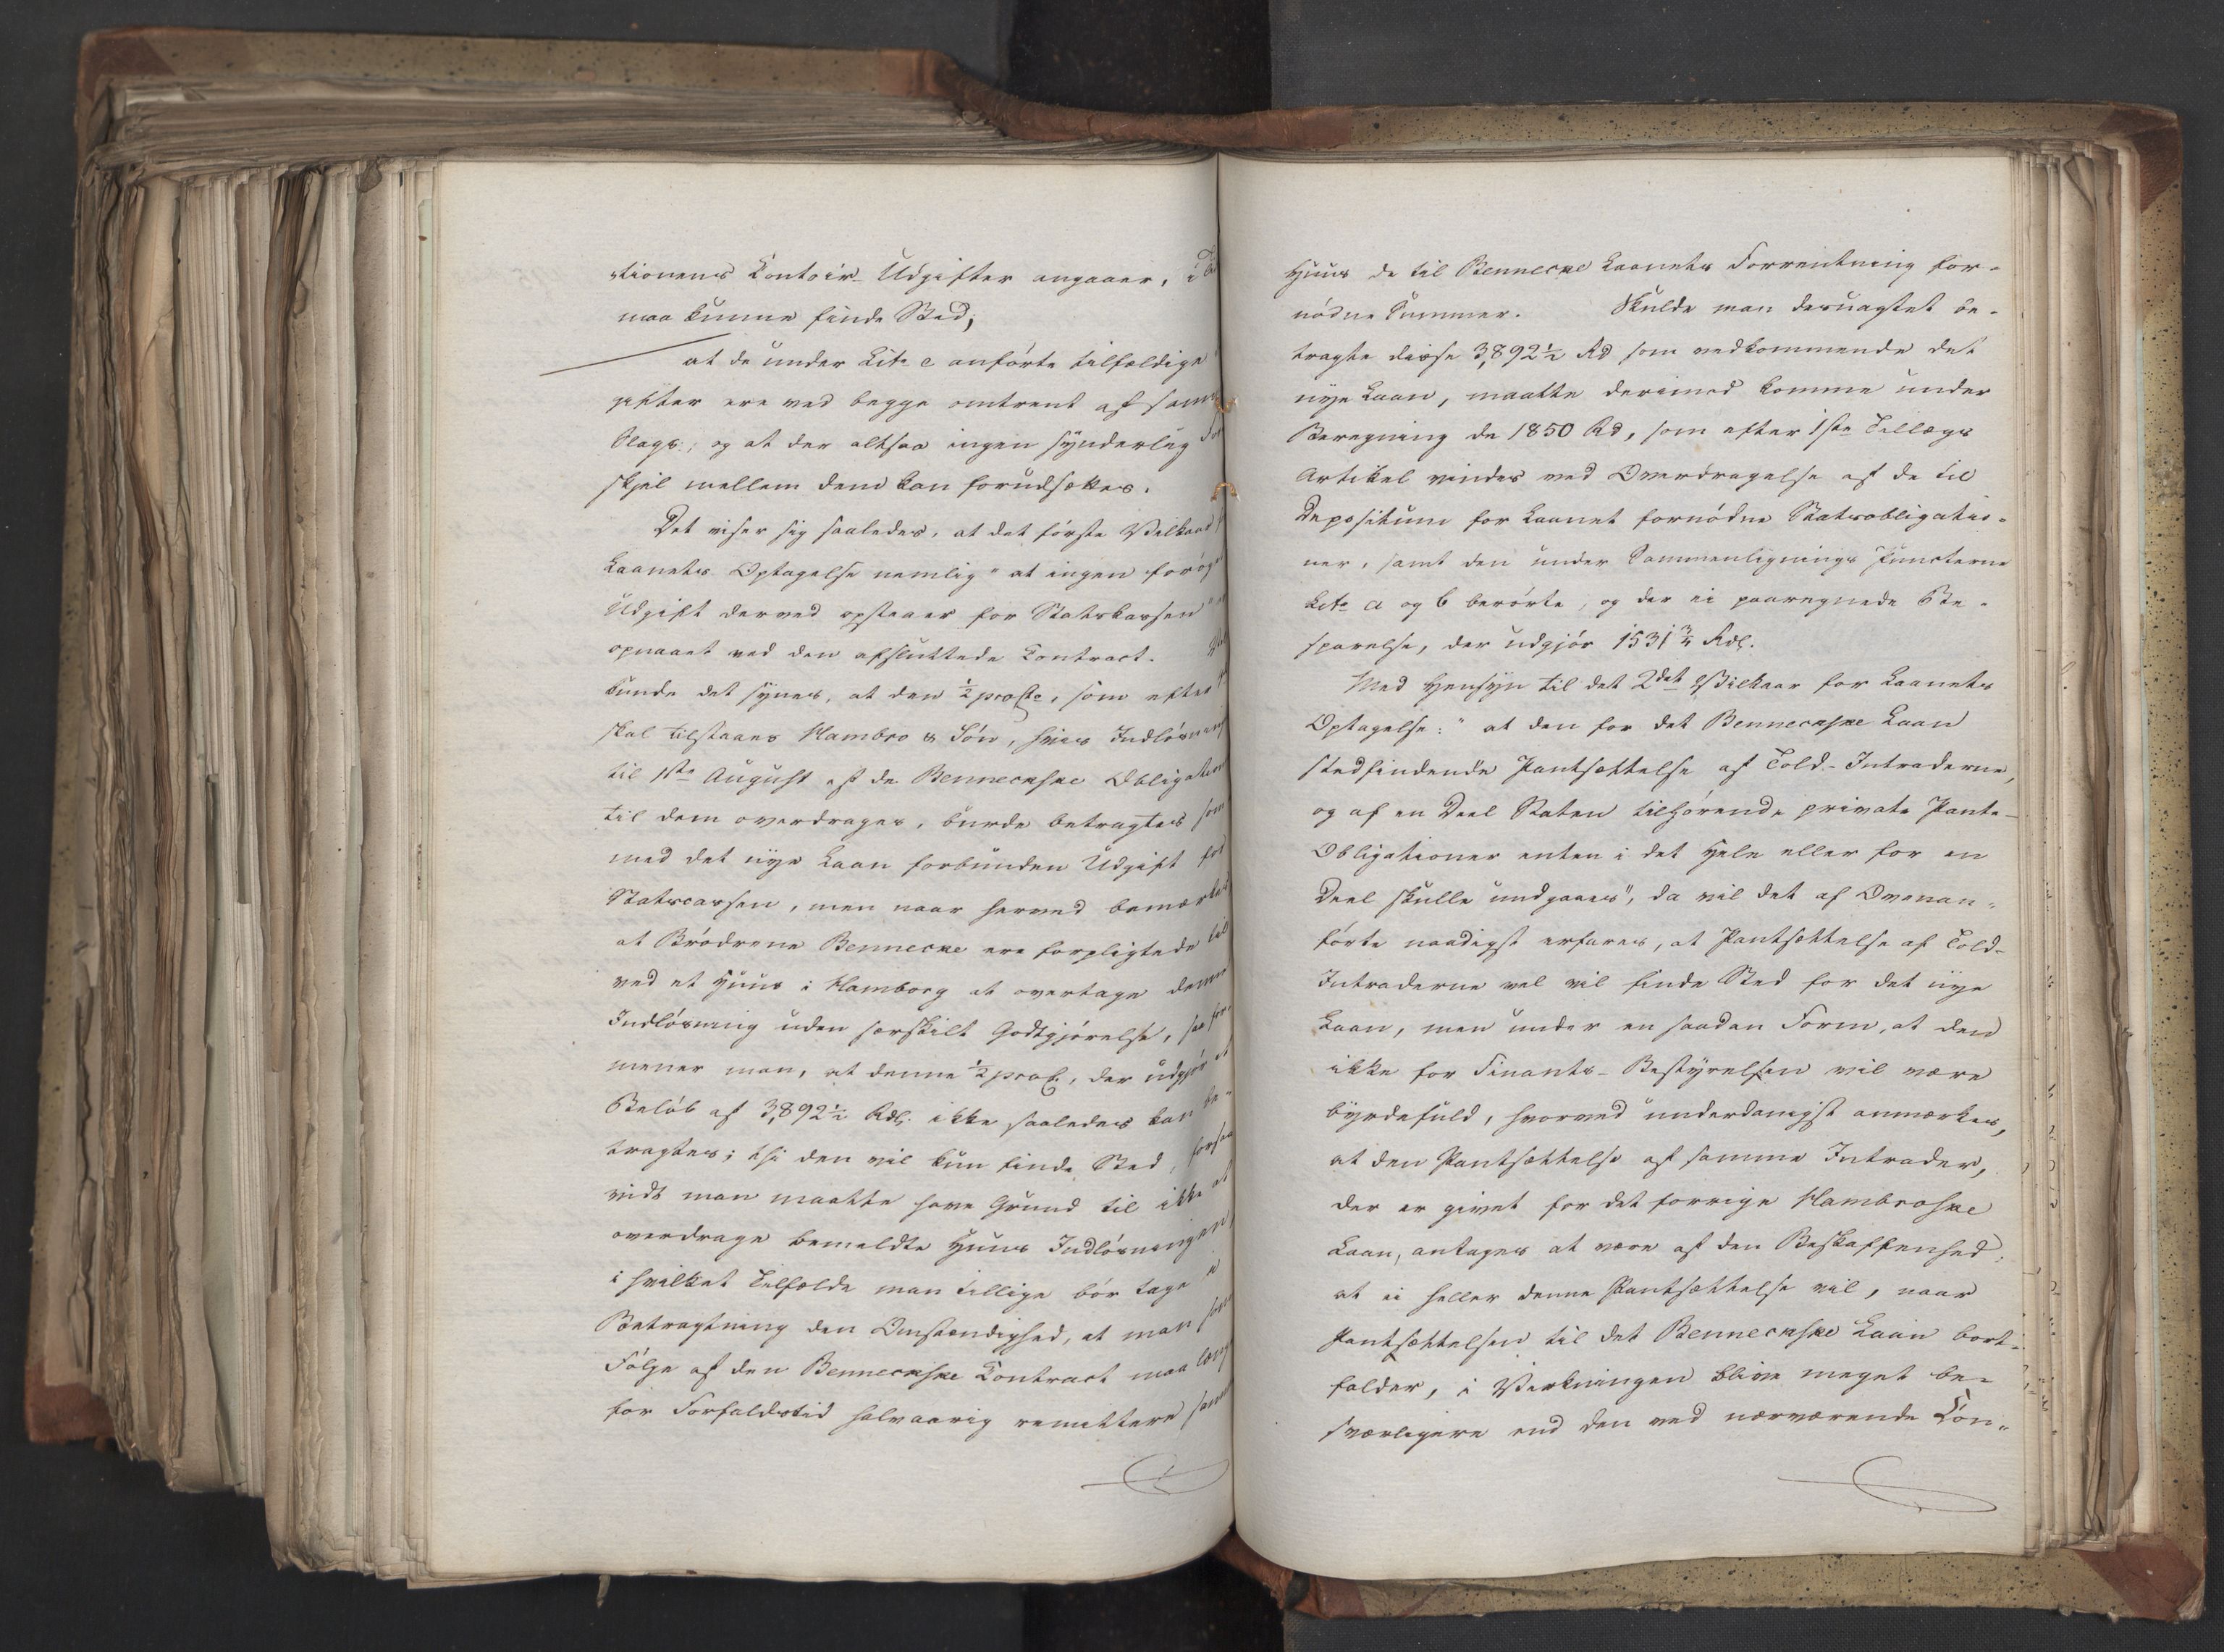 ctionens Contoir-Udgifter angaaer, i
maa kunne finde Sted;
at de under Lit. c anførte tilfældige
gifter ere ved begge omtrent af samme
Slags; og at der altsaa ingen synderlig For
skjel mellem dem kan forudsættes.
Det viser sig saaledes, at det første Vilkaar
Laanets Optagelse nemlig "at ingen forøg
Udgift derved opstaaer for Statskassen"
opnaaet ved den afsluttede Contract.
kunde det synes, at den ½ procto, som efter
skal tilstaaes Hambro & Søn, hvis Indløsning
til 1ste August af de Benneckske Obligation
til dem overdrages, burde betragtes som
med det nye Laan forbunden Udgift for
Statscassen, men naar herved bemærkes
at Brødrene Bennecke ere forpligtede til
ved et Huus i Hamborg at overtage denne
Indløsning uden særskilt Godtgjørelse, saa for-
mener man, at denne ½ proC., der udgjør et
Beløb af 3,892½ Rdl. ikke saaledes kan be-
tragtes; thi den vil kun finde Sted, forsaa
vidt man maatte have Grund til ikke at
overdrage bemeldte Huus Indløsningen,
i hvilket Tilfælde man tillige bør tage i
Betragtning den Omstændighed, at man som
Følge af den Benneckske Contract maa læng
før Forfaldstid halvaarig remittere samme
Huus de til Bennecke Laanets Forrentning for-
nødne Summer. Skulde man desuagtet be-
tragte disse 3,892½ Rd som vedkommende det
nye Laan, maatte derimod komme under
Beregning de 1850 Rd, som efter 1ste Tillægs
Artikel vindes ved Overdragelse af de til
Depositum for Laanet fornødne Statsobligatio-
ner, samt den under Sammenlignings Puncterne
Lit. a og b berørte, og der ei paaregnede Be-
sparelse, der udgjør 1531¾ Rdl.
Med Hensyn til det 2det Vilkaar for Laanets
Optagelse: "at den for det Benneckske Laan
stedfindende Pantsættelse af Told-Intraderne,
og af en Deel Staten tilhørende private Pante-
Obligationer enten i det Hele eller for en
Deel skulle undgaaes", da vil det af Ovenan-
førte naadigst erfares, at Pantsættelse af Told-
Intraderne vel vil finde Sted for det nye
Laan, men under en saadan Form, at den
ikke for Finants-Bestyrelsen vil være
byrdefuld, hvorved underdanigst anmærkes,
at den Pantsættelse af samme Intrader,
der er givet for det forrige Hambroske
Laan, antages at være af den Beskaffenhed,
at ei heller denne Pantsættelse vil, naar
Pantsættelsen til det Benneckske Laan bort-
falder, i Virkningen blive meget be-
sværligere end den ved nærværende Con-